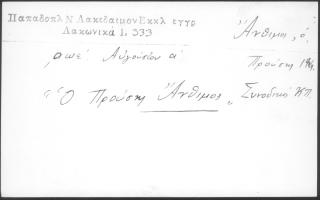 Παπαδοπλ Ν Λακεδαιμον Εκκλ εγγρ
Λακωνικά 1. 333
Ἄνθιμος, ὁ,
Προύσης
͵αωε΄ Αὐγούστου α΄
"Ὁ Προύσης Ἄνθιμος" Συνοδικὸ ΚΠ